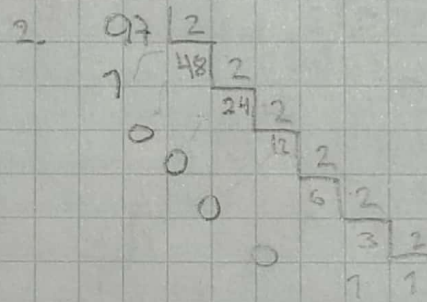 2. 97 2
1 48 2
24 2
0 12 2
0 6 2
0 3 2
0 1 1